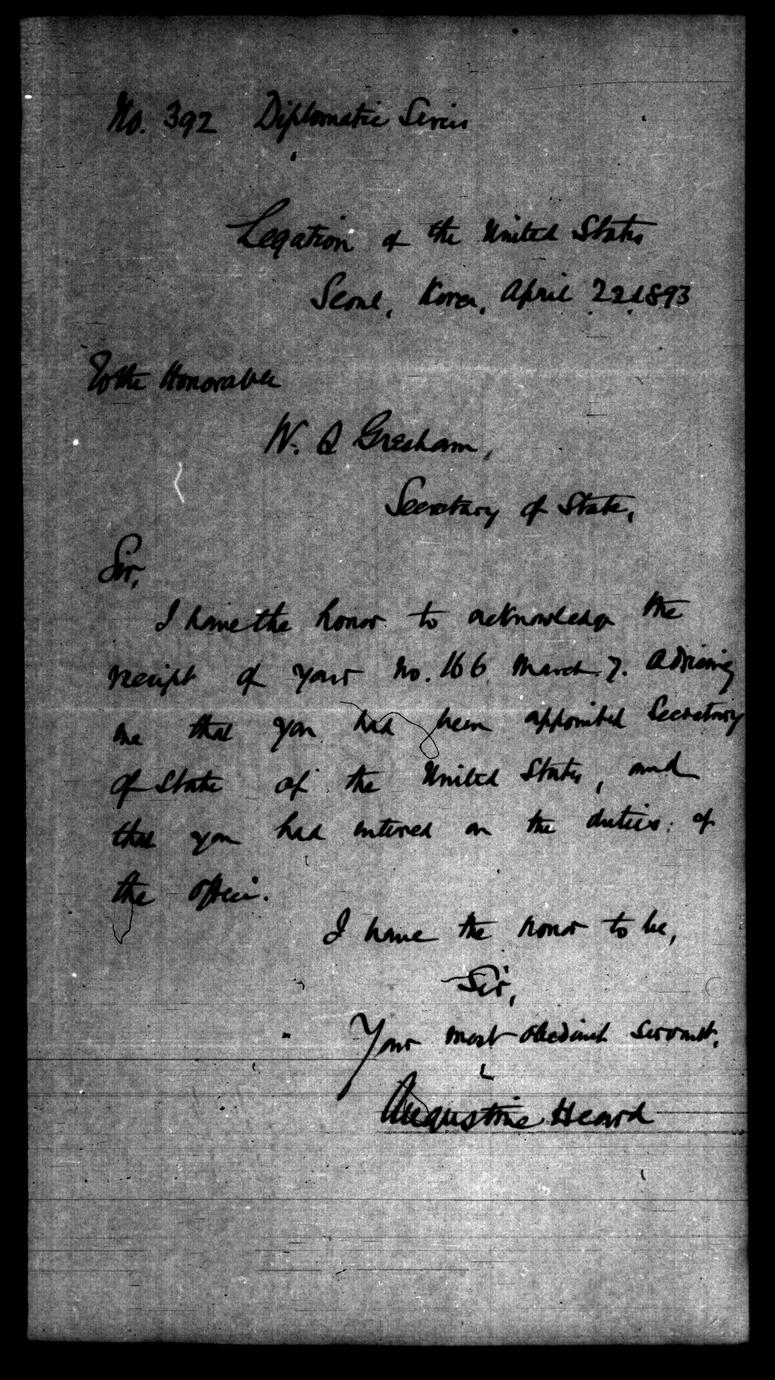 No. 392 Diplomatic Series
Legation of the United States
Seoul, Korea, April 22. 1893
To the Honorable
W. Q Gresham,
Secretary of State,
Sir,
I have the honor to acknowledge the
receipt of your No. 166 March 7. advising
me that you had been appointed Secretary
of State of the United States, and
that you had entered on the duties of
the office.
I have the honor to be,
Sir,
Your most obedient servant,
Augustine Heard